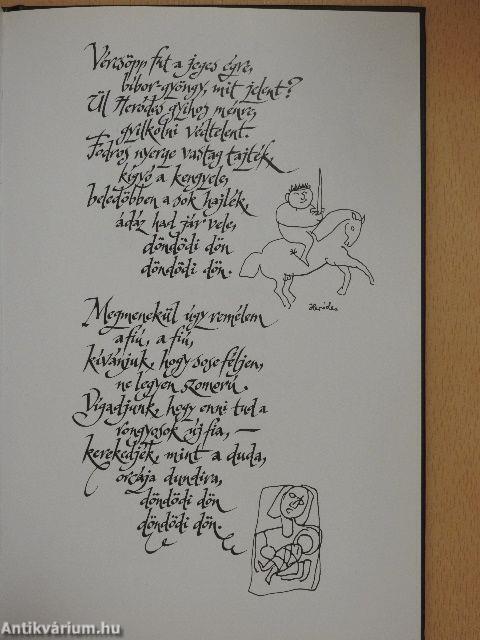 Vércsöpp fut a jeges égre,
bíbor-gyöngy, mit jelent?
Ül Heródes gyihos ménre,
gyilkolni védtelent.
Fodros nyerge vastag tajték,
kígyó a kengyele,
beledöbben a sok hajlék,
ádáz had jár vele,
döndödi dön
döndödi dön.
Heródes
Megmenekül úgy remélem
a fiú, a fiú,
kívánjuk, hogy sose féljen,
ne legyen szomorú.
Vígadjunk, hogy enni tud a
rongyosok új fia, —
kerekedjék, mint a duda,
orcája dundira,
döndödi dön
döndödi dön.
Antikvárium.hu